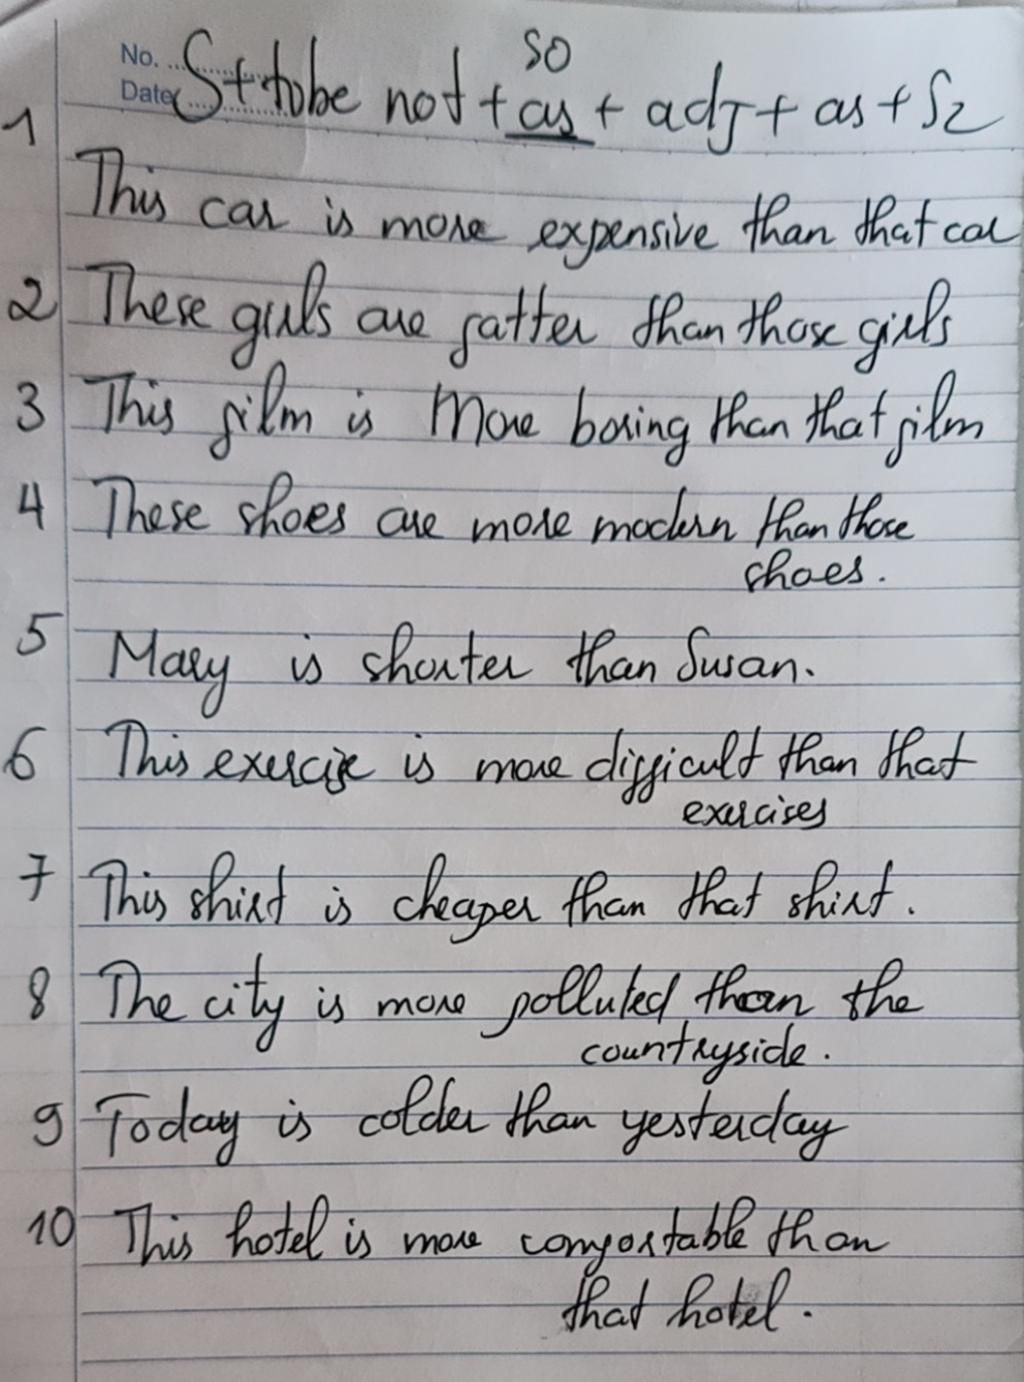 No.
so
Date
S+tobe not + as + adj + as + S2
1
This car is more expensive than that car
2 These girls are fatter than those girls
3 This film is More boring than that film
4 These shoes are more modern than those
shoes.
5 Mary is shorter than Susan.
6 This exercise is more difficult than that
exercises
7 This shirt is cheaper than that shirt.
8 The city is more polluted than the
countryside.
9 Today is colder than yesterday
10 This hotel is more comfortable than
that hotel.